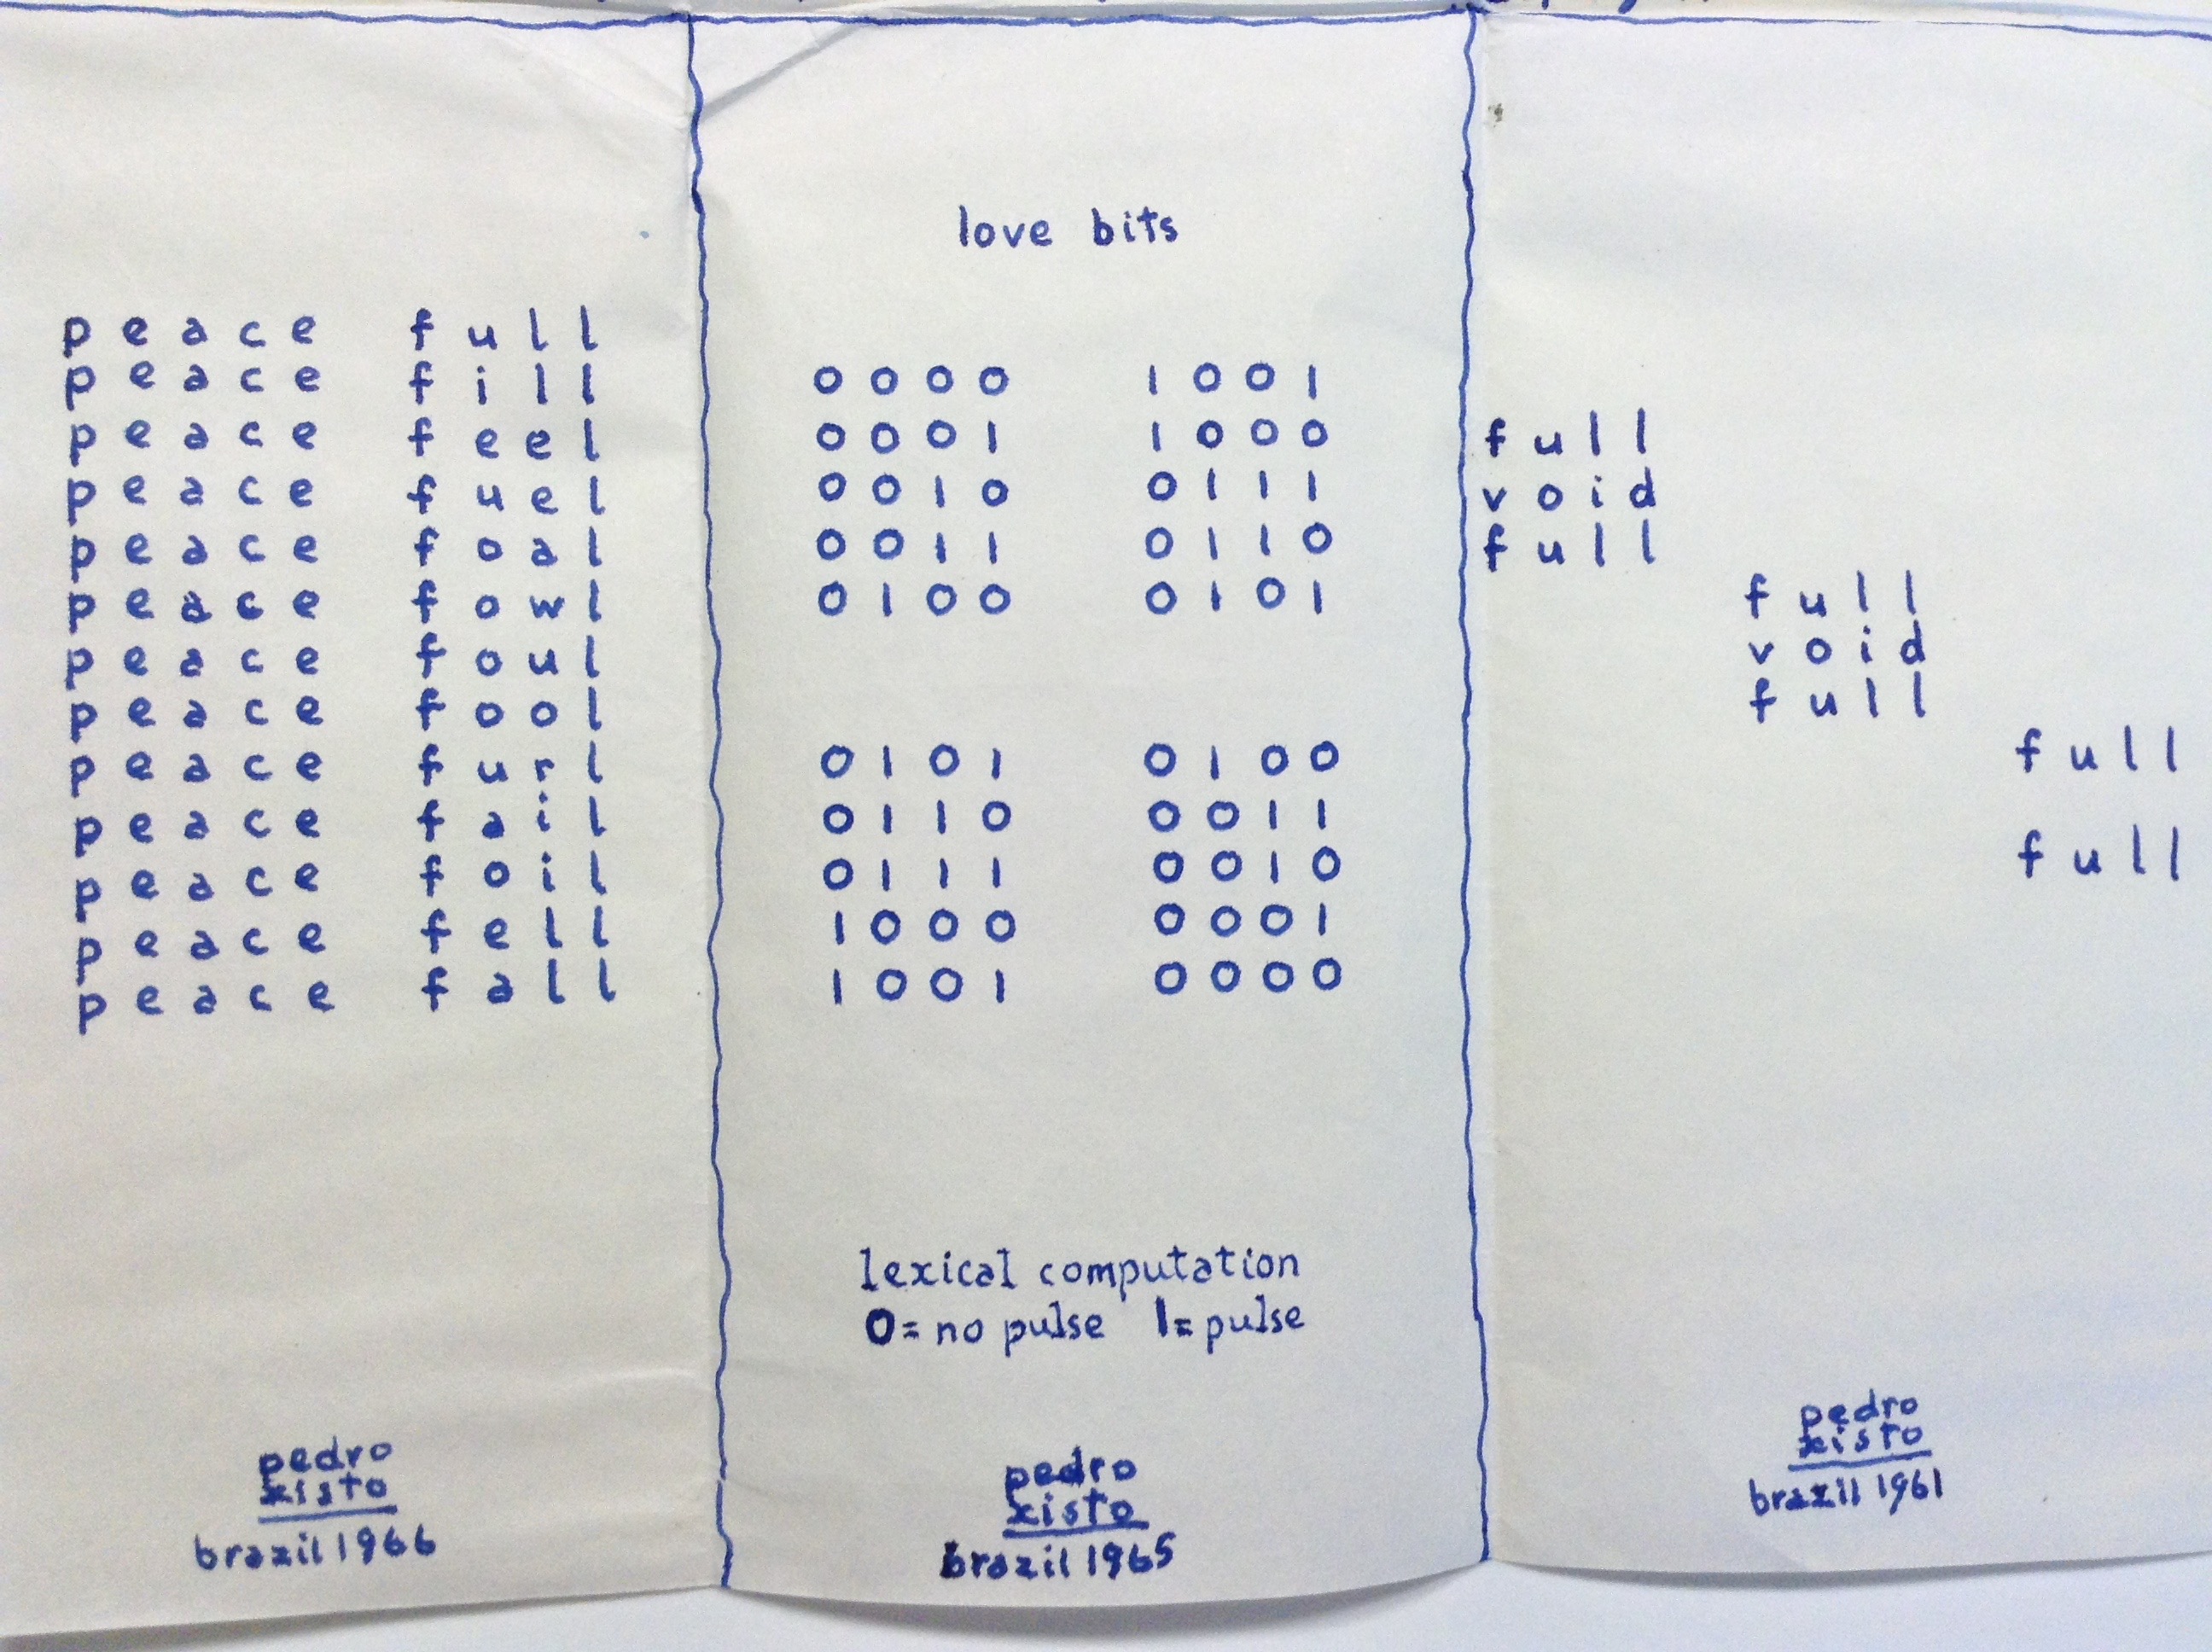 p e a c e f u l l
p e a c e f i l l
p e a c e f e e l
p e a c e f u e l
p e a c e f o a l
p e a c e f o w l
p e a c e f o u l
p e a c e f o o l
p e a c e f u r l
p e a c e f a i l
p e a c e f o i l
p e a c e f e l l
p e a c e f a l l
pedro
xisto
brazil 1966
love bits
0 0 0 0 1 0 0 1
0 0 0 1 1 0 0 0
0 0 1 0 0 1 1 1
0 0 1 1 0 1 1 0
0 1 0 0 0 1 0 1
0 1 0 1 0 1 0 0
0 1 1 0 0 0 1 1
0 1 1 1 0 0 1 0
1 0 0 0 0 0 0 1
1 0 0 1 0 0 0 0
lexical computation
0= no pulse 1= pulse
pedro
xisto
brazil 1965
f u l l
v o i d
f u l l
f u l l
v o i d
f u l l
f u l l
f u l l
pedro
xisto
brazil 1961